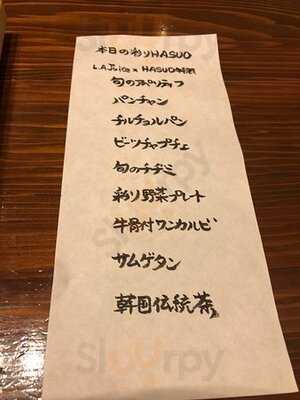 本日の彩りHASUO
L.A.Juice × HASUO特製
旬のアペリティフ
パンチャン
チルチョルパン
ビーツチャプチェ
旬のチヂミ
彩り野菜プレート
牛骨付ワンカルビ
サムゲタン
韓国伝統茶
Sluurpy